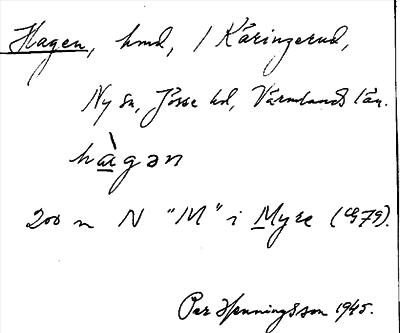 Hagen, hmd, i Käringerud,
Ny sn, Jösse hd, Värmlands län.
hàgən
200 m N "M" i Myre (G79).
Per Henningsson 1945.